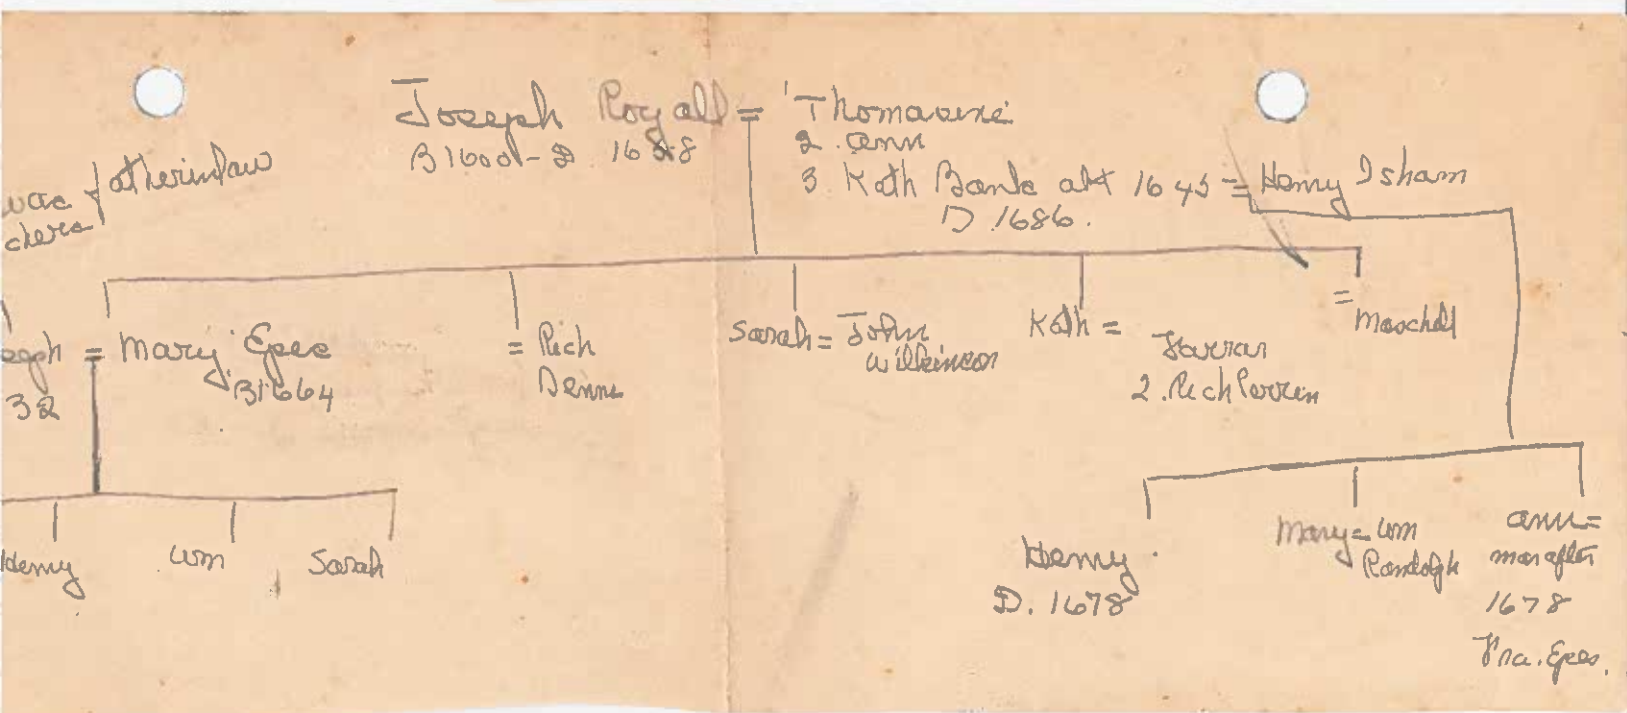 Joseph Royall = 1 Thomasine
B 1600 - D. 1658
2. Ann
3. Kath Banks abt 1645 = Henry Isham
D 1686.
was fatherinlaw
chers
= Mary Epes
B 1664
32
= Rich
Denns
Sarah = John
Wilkinson
Kath =
Farrar
2. Rich Perrin
=
Maschall
Henry
Wm
Sarah
Henry
D. 1678
Mary = Wm
Randolph
Ann =
mar after
1678
Fra. Epes.